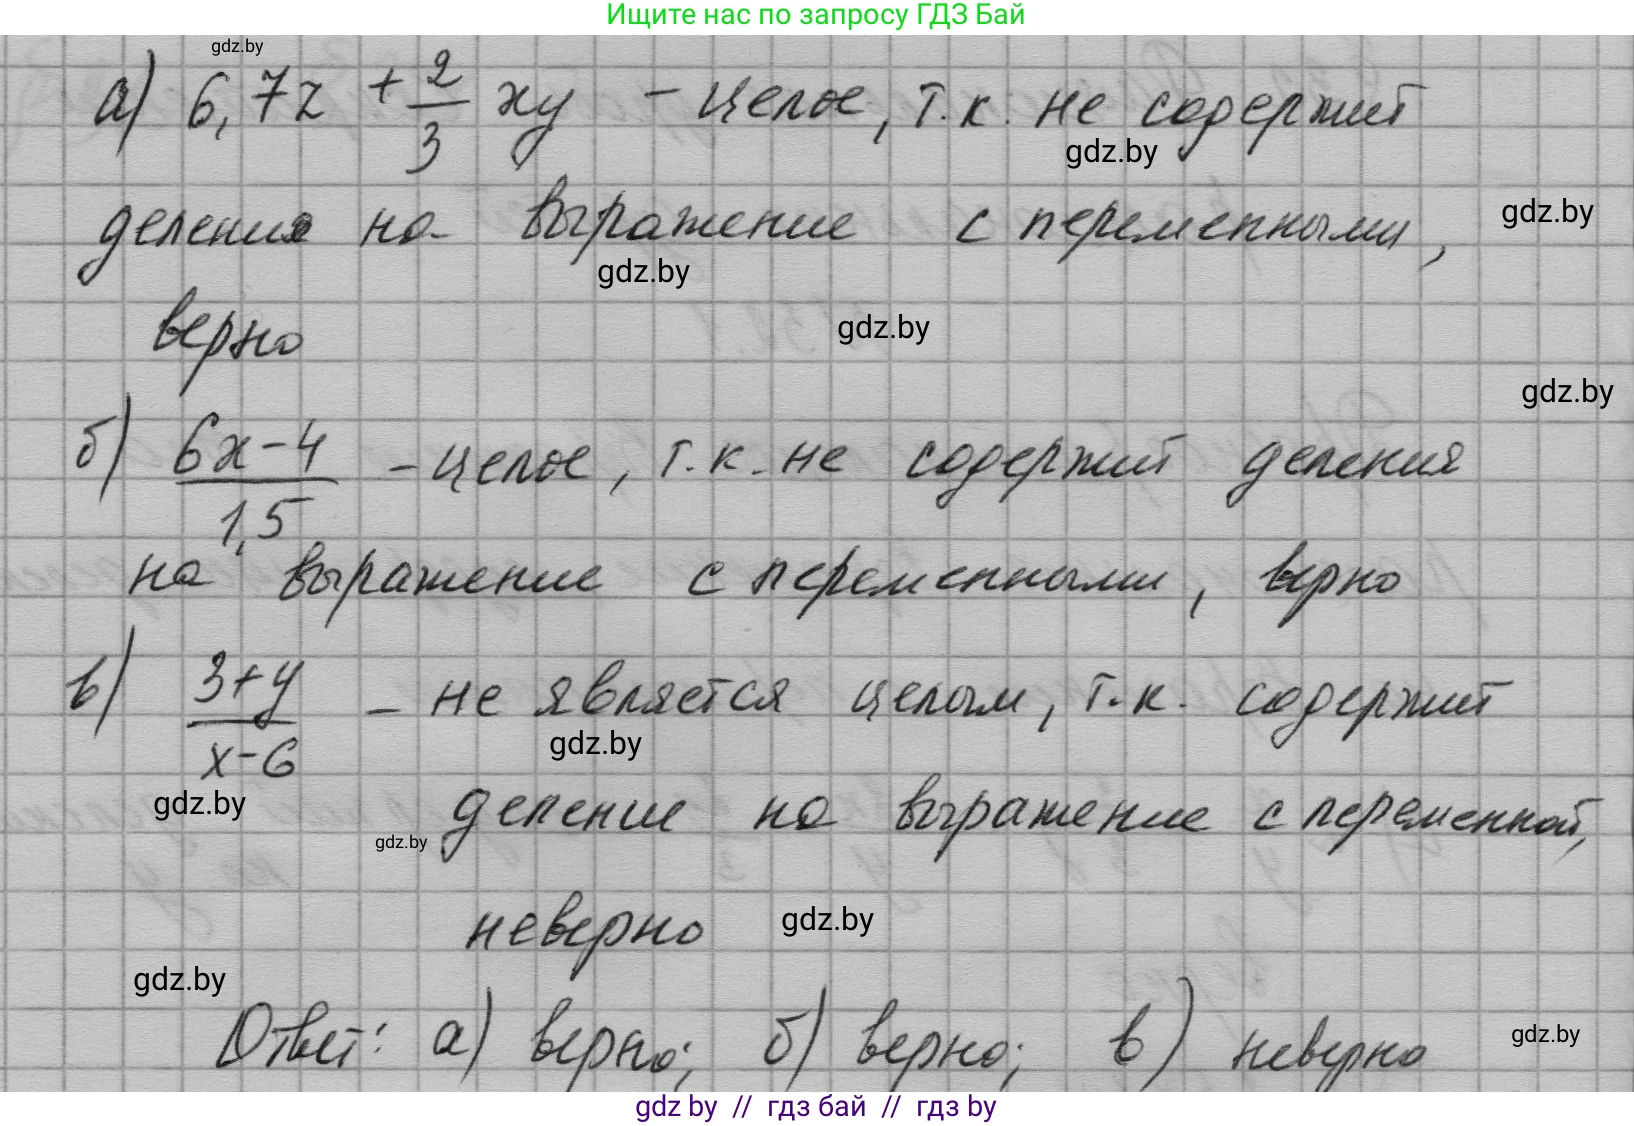 Ищите нас по запросу ГДЗ Бай
gdz.by
а) 6,7z + 2/3 xy - целое, т.к. не содержит
gdz.by
деления на выражение с переменными,
gdz.by
gdz.by
верно
gdz.by
gdz.by
б) (6x-4)/1,5 - целое, т.к. не содержит деления
на выражение с переменными, верно
в) (3+y)/(x-6) - не является целым, т.к. содержит
gdz.by
gdz.by
деление на выражение с переменной,
gdz.by
неверно
gdz.by
gdz.by
Ответ: а) верно; б) верно; в) неверно
gdz.by
gdz by // гдз бай // гдз by